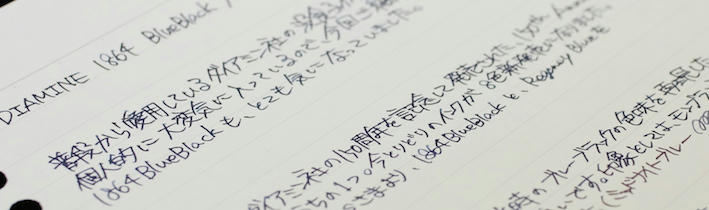 DIAMINE 1864 BlueBlack
普段から愛用しているダイアミン社の
個人的に大変気に入っているので、今回
1864 BlueBlackも、とても気になっていました。
ダイアミン社の150周年を記念して発売された、150th
ちの1つ。今とりどりのインクが8色新発売になりました。
さまより、1864 BlueBlackと、Regency Blueを
時のブルーブラックの色味を再現した
いです。印象としては、モンブラン
(ミッドナイトブルー